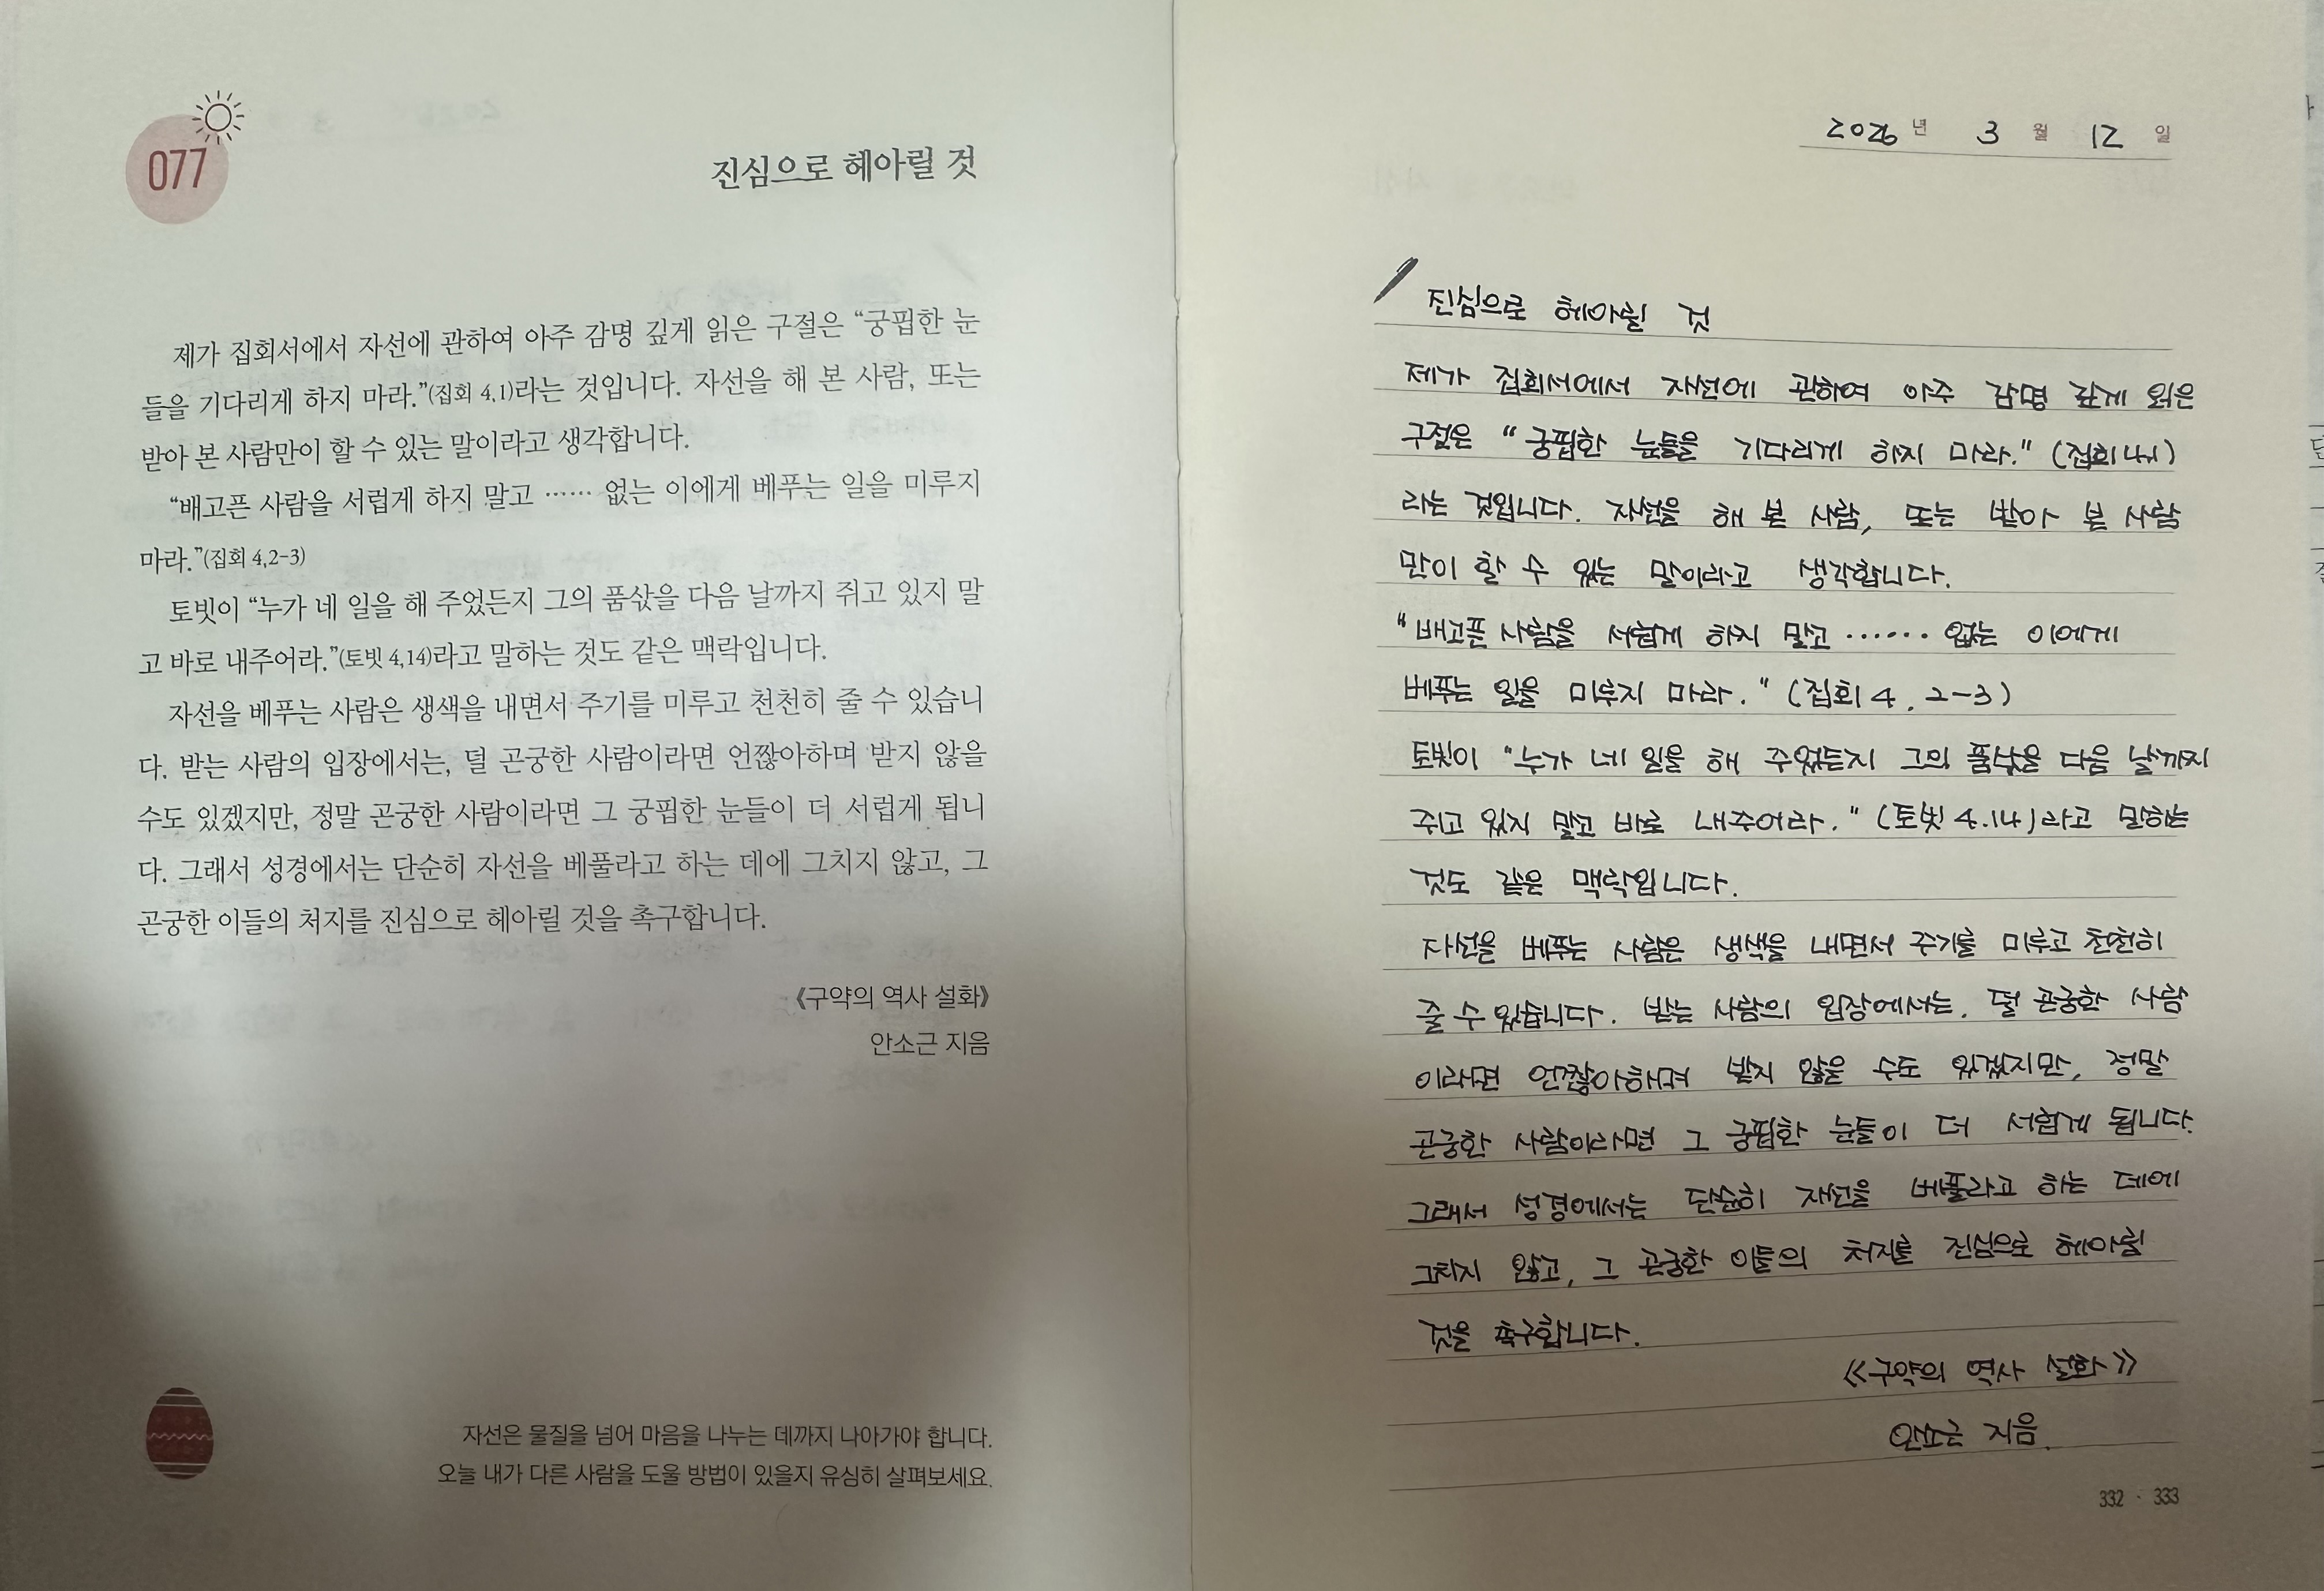 077
진심으로 헤아릴 것
제가 집회서에서 자선에 관하여 아주 감명 깊게 읽은 구절은 “궁핍한 눈
들을 기다리게 하지 마라.”(집회 4,1)라는 것입니다. 자선을 해 본 사람, 또는
받아 본 사람만이 할 수 있는 말이라고 생각합니다.
“배고픈 사람을 서럽게 하지 말고 …… 없는 이에게 베푸는 일을 미루지
마라.”(집회 4,2-3)
토빗이 “누가 네 일을 해 주었든지 그의 품삯을 다음 날까지 쥐고 있지 말
고 바로 내주어라.”(토빗 4,14)라고 말하는 것도 같은 맥락입니다.
자선을 베푸는 사람은 생색을 내면서 주기를 미루고 천천히 줄 수 있습니
다. 받는 사람의 입장에서는, 덜 곤궁한 사람이라면 언짢아하며 받지 않을
수도 있겠지만, 정말 곤궁한 사람이라면 그 궁핍한 눈들이 더 서럽게 됩니
다. 그래서 성경에서는 단순히 자선을 베풀라고 하는 데에 그치지 않고, 그
곤궁한 이들의 처지를 진심으로 헤아릴 것을 촉구합니다.
《구약의 역사 설화》
안소근 지음
자선은 물질을 넘어 마음을 나누는 데까지 나아가야 합니다.
오늘 내가 다른 사람을 도울 방법이 있을지 유심히 살펴보세요.
2026 년 3 월 12 일
진심으로 헤아릴 것
제가 집회서에서 자선에 관하여 아주 감명 깊게 읽은
구절은 “궁핍한 눈들을 기다리게 하지 마라.” (집회 4,1)
라는 것입니다. 자선을 해 본 사람, 또는 받아 본 사람
만이 할 수 있는 말이라고 생각합니다.
“배고픈 사람을 서럽게 하지 말고 …… 없는 이에게
베푸는 일을 미루지 마라.” (집회 4, 2-3)
토빗이 “누가 네 일을 해 주었든지 그의 품삯을 다음 날까지
쥐고 있지 말고 바로 내주어라.” (토빗 4.14)라고 말하는
것도 같은 맥락입니다.
자선을 베푸는 사람은 생색을 내면서 주기를 미루고 천천히
줄 수 있습니다. 받는 사람의 입장에서는, 덜 곤궁한 사람
이라면 언짢아하며 받지 않을 수도 있겠지만, 정말
곤궁한 사람이라면 그 궁핍한 눈들이 더 서럽게 됩니다.
그래서 성경에서는 단순히 자선을 베풀라고 하는 데에
그치지 않고, 그 곤궁한 이들의 처지를 진심으로 헤아릴
것을 촉구합니다.
《구약의 역사 설화》
안소근 지음.
332 · 333